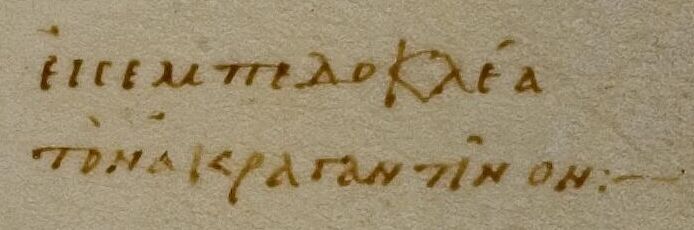 εἰς ἐμπεδοκλέα
τὸν ἀκραγαντῖνον:—